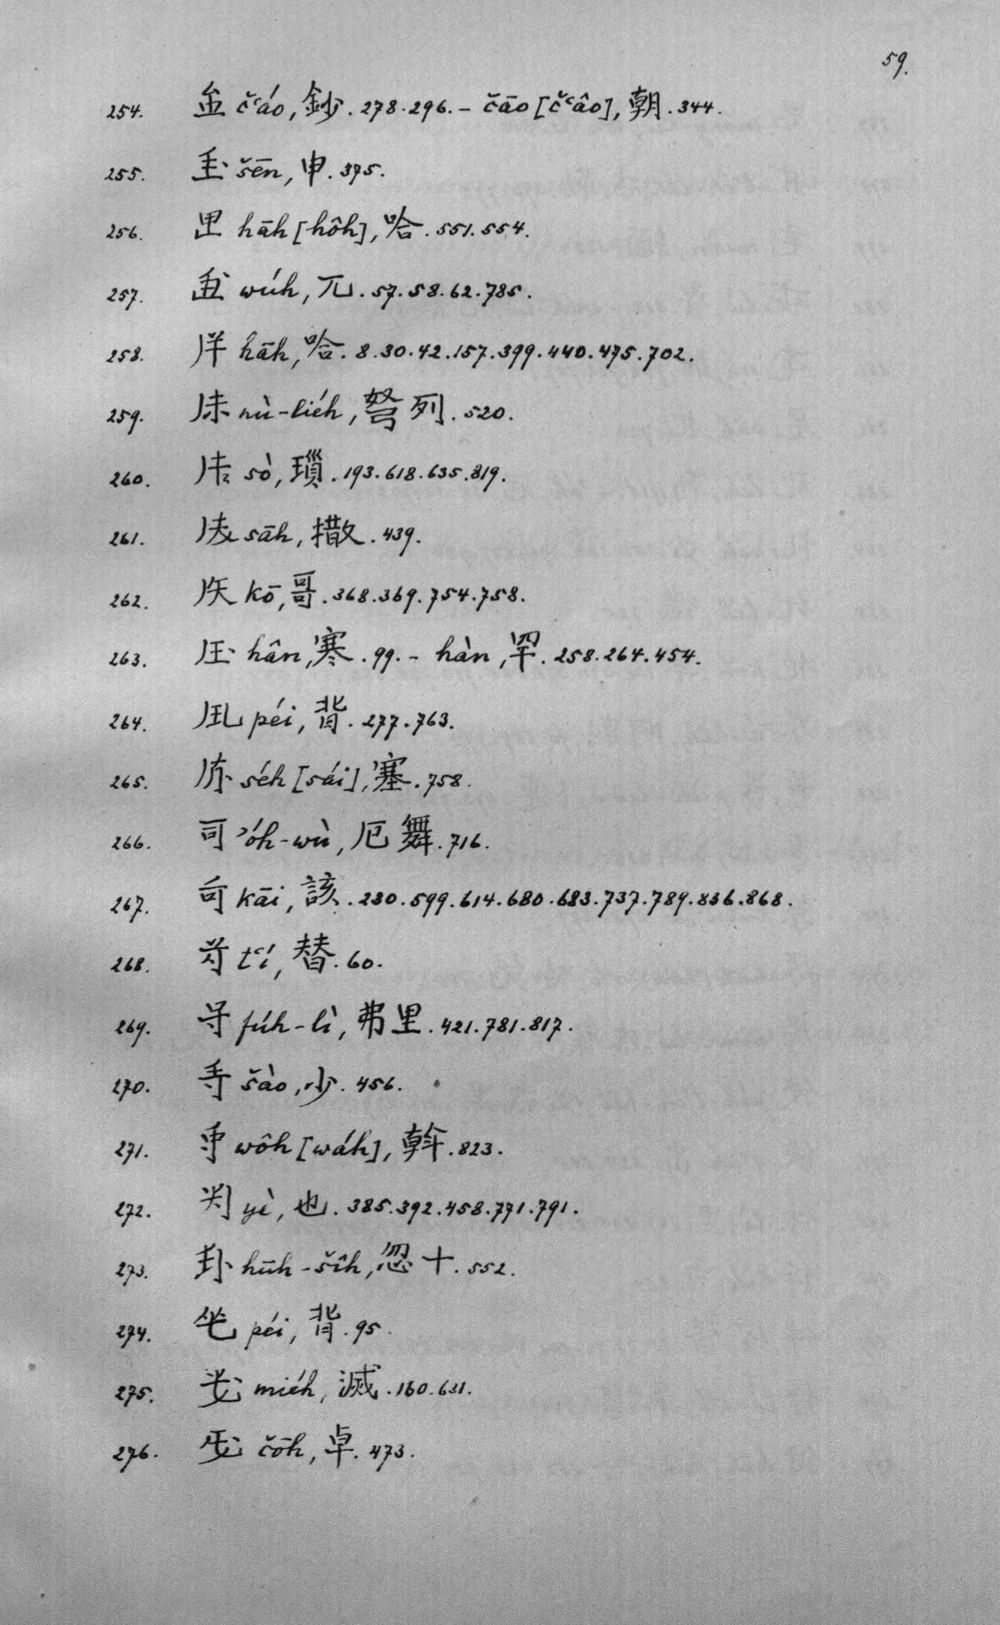 59.
254. č‘áo, 鈔. 278. 296. – čāo [č‘âo], 朝. 344.
255. šēn, 申. 375.
256. hāh [hôh], 哈. 551. 554.
257. wúh, 兀. 57. 58. 62. 785.
258. hāh, 哈. 8. 30. 42. 157. 399. 440. 475. 702.
259. nù-liéh, 弩列. 520.
260. sò, 瑣. 193. 618. 635. 819.
261. sāh, 撒. 439.
262. kō, 哥. 368. 369. 754. 758.
263. hân, 寒. 99. – hàn, 罕. 258. 264. 454.
264. péi, 背. 277. 763.
265. séh [sái], 塞. 758.
266. ’óh-wù, 厄舞. 716.
267. kāi, 該. 230. 599. 614. 680. 683. 737. 789. 836. 868.
268. t‘í, 替. 60.
269. fúh-lì, 弗里. 421. 781. 817.
270. šào, 少. 456.
271. wôh [wáh], 斡. 823.
272. yè, 也. 385. 392. 458. 771. 791.
273. hūh-šîh, 忽十. 552.
274. péi, 背. 95.
275. miéh, 滅. 160. 631.
276. čōh, 卓. 473.